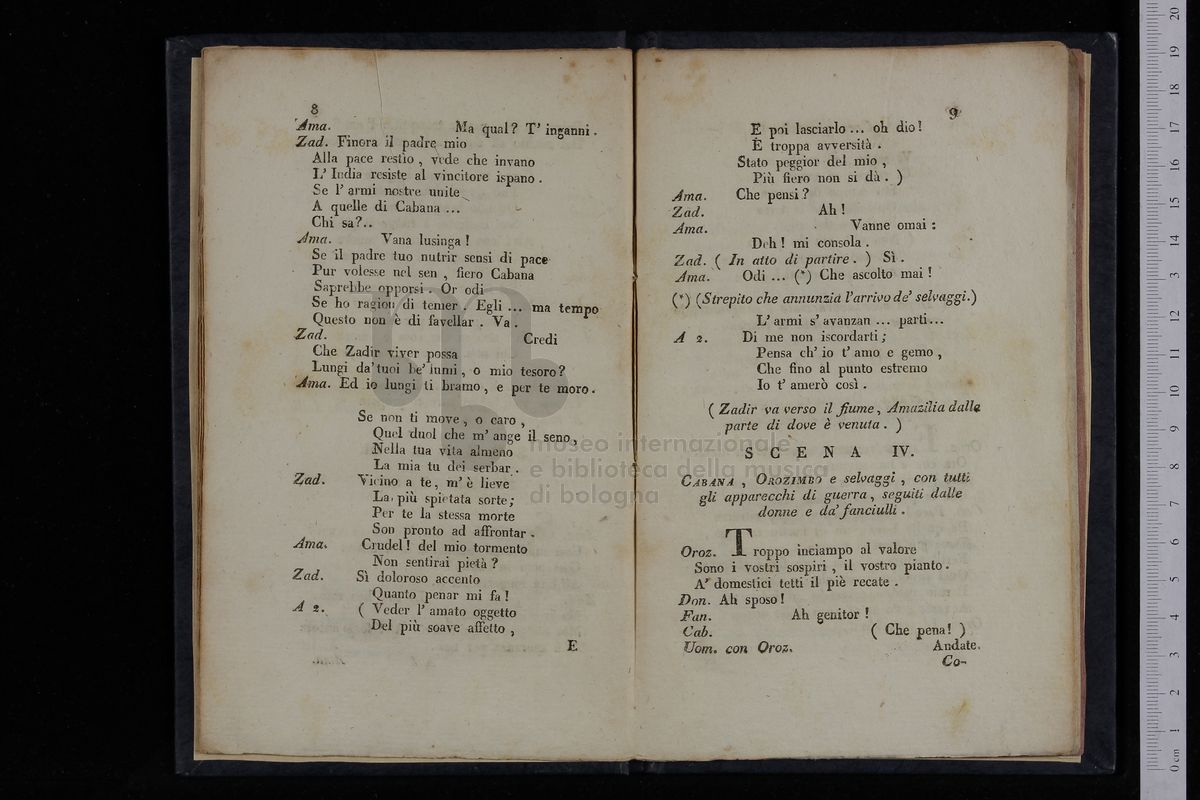 8
Ama. Ma qual? T' inganni.
Zad. Finora il padre mio
Alla pace restio, vede che invano
L' India resiste al vincitore ispano.
Se l' armi nostre unite
A quelle di Cabana ...
Chi sa?..
Ama. Vana lusinga!
Se il padre tuo nutrir sensi di pace
Pur volesse nel sen, fiero Cabana
Saprebbe opporsi. Or odi
Se ho ragion di temer. Egli ... ma tempo
Questo non è di favellar. Va.
Zad. Credi
Che Zadir viver possa
Lungi da' tuoi be' lumi, o mio tesoro?
Ama. Ed io lungi ti bramo, e per te moro.
Se non ti move, o caro,
Quel duol che m' ange il seno,
Nella tua vita almeno
La mia tu dei serbar.
Zad. Vicino a te, m' è lieve
La più spietata sorte;
Per te la stessa morte
Son pronto ad affrontar.
Ama. Crudel! del mio tormento
Non sentirai pietà?
Zad. Sì doloroso accento
Quanto penar mi fa!
A 2. ( Veder l' amato oggetto
Del più soave affetto,
E
9
E poi lasciarlo ... oh dio!
È troppa avversità.
Stato peggior del mio,
Più fiero non si dà. )
Ama. Che pensi?
Zad. Ah!
Ama. Vanne omai:
Deh! mi consola.
Zad. ( In atto di partire. ) Sì.
Ama. Odi ... (*) Che ascolto mai!
(*) (Strepito che annunzia l'arrivo de' selvaggi.)
L' armi s' avanzan ... parti...
A 2. Di me non iscordarti;
Pensa ch' io t' amo e gemo,
Che fino al punto estremo
Io t' amerò così.
( Zadir va verso il fiume, Amazilia dalla
parte di dove è venuta. )
SCENA IV.
CABANA, OROZIMBO e selvaggi, con tutti
gli apparecchi di guerra, seguiti dalle
donne e da' fanciulli.
Oroz. Troppo inciampo al valore
Sono i vostri sospiri, il vostro pianto.
A' domestici tetti il piè recate.
Don. Ah sposo!
Fan. Ah genitor!
Cab. ( Che pena! )
Uom. con Oroz. Andate.
Co-
museo internazionale
e biblioteca della musica
di bologna
0 cm 1 2 3 4 5 6 7 8 9 10 11 12 13 14 15 16 17 18 19 20